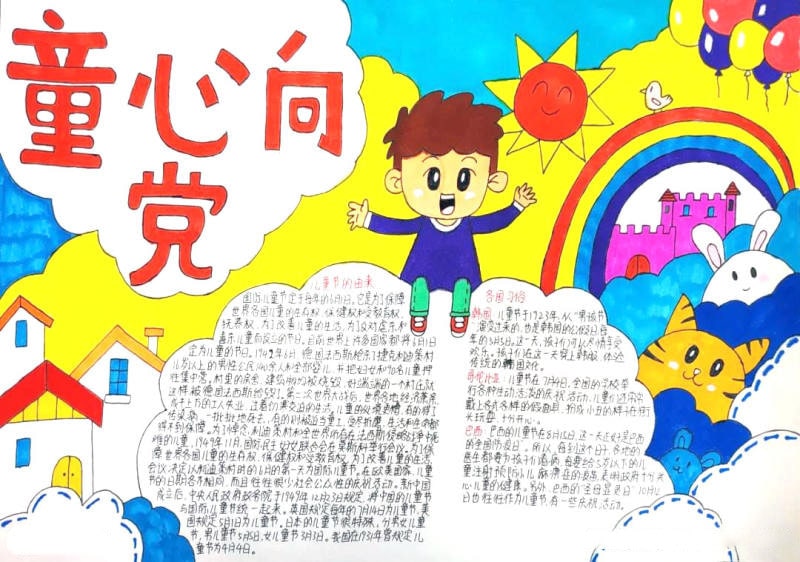 童心向
党
儿童节的由来
国际儿童节定于每年的6月1日,它是为了保障
世界各国儿童的生存权、保健权和受教育权、
抚养权,为了改善儿童的生活,为了反对虐杀和
毒害儿童而设立的节日。目前世界上许多国家都将6月1日
定为儿童的节日。1942年6月,德国法西斯枪杀了捷克利迪策村
16岁以上的男性公民140余人和全部婴儿,并把妇女和90名儿童押
往集中营。村里的房舍、建筑物均被烧毁,好端端的一个村庄就
这样被德国法西斯给毁了。第二次世界大战后,世界各地经济萧条
成千上万的工人失业,过着饥寒交迫的生活。儿童的处境更糟,有的得了
传染病,一批批地死去,有的则被迫当童工,受尽折磨,生活和生命都
得不到保障。为了悼念利迪策村和全世界所有在法西斯侵略战争中死
难的儿童,1949年11月,国际民主妇女联合会在莫斯科举行会议。为了保障
全世界各国儿童的生存权、保健权和受教育权,为了改善儿童的生活,
会议决定以利迪策村的6月的第一天为国际儿童节。在欧美国家,儿童
节的日期各不相同,而且往往很少社会公众性的庆祝活动。新中国
成立后,中央人民政府政务院于1949年12月23日规定,将中国的儿童节
与国际儿童节统一起来。英国规定每年的7月14日为儿童节,美
国规定5月1日为儿童节。日本的儿童节很特殊,分男女儿童
节,男儿童节5月5日,女儿童节3月3日。我国在1931年曾规定儿
童节为4月4日。
各国习俗
韩国:儿童节于1923年,从“男孩节”
演变过来的,也是韩国的公休日,每
年的5月5日。这一天,孩子们可以尽情享受
欢乐。孩子们在这一天穿上韩服,体验
传统的韩国文化。
哥伦比亚:儿童节在7月4日,全国的学校举
行各种生动活泼的庆祝活动,儿童们还常常
戴上各式各样的假面具,扮成小丑的样子在街
头玩耍,十分开心。
巴西:巴西的儿童节在8月15日,这一天正好是巴西
的全国防疫日。所以,每到这个日子,各地的
医生都要为孩子们看病,还要给5岁以下的儿
童注射预防小儿麻痹症的疫苗,表明政府十分关
心儿童的健康。另外,巴西的“圣母显灵日”10月12
日也往往作为儿童节,有一些庆祝活动。